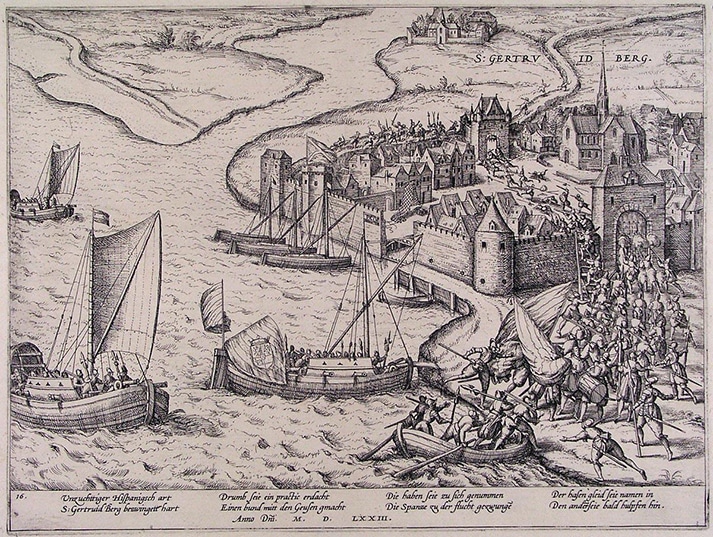 S: GERTRV ID BERG.
16.
Unzuchitiger Hispanigsch art
S: Gertruid Berg bezwingett hart
Drumb seie ein practic erdacht
Einen bund mitt den Geusen gmacht
Die haben seie zu sich genummen
Die Spanze zu der flucht gezwungē
Der hasen gleid seie namen in
Den anderseie bald hulpfen hin.
Anno Dñi. M. D. LXXIII.